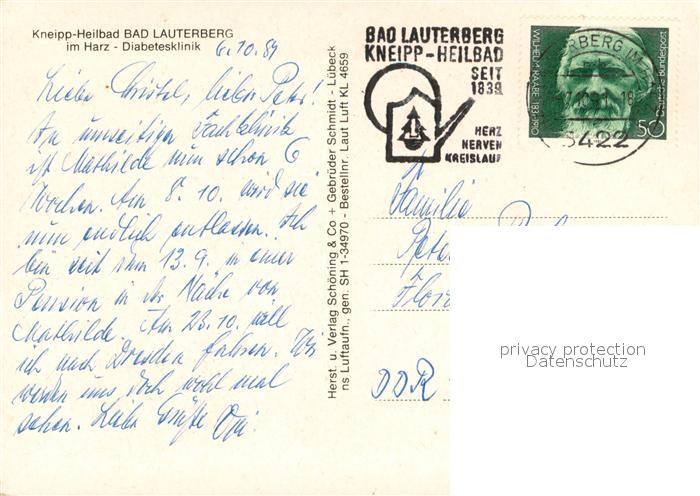 Kneipp-Heilbad BAD LAUTERBERG
im Harz - Diabetesklinik
6.10.81
Liebe Christel, lieber Peter!
An unseitigen Fachklinik
ist Mathilde nun schon 6
Wochen. Am 8.10. wird sie
nun endlich entlassen. Ich
bin seit dem 13.9. in einer
Pension in der Nähe von
Mathilde. Am 23.10. will
ich nach Dresden fahren. Wir
werden uns doch wohl mal
sehen. Liebe Grüße Opi!
Herst. u. Verlag Schöning & Co + Gebrüder Schmidt - Lübeck
ns Luftaufn., gen. SH 1-34970 - Bestellnr. Laut Luft KL 4659
BAD LAUTERBERG
KNEIPP-HEILBAD
SEIT
1839
HERZ
NERVEN
KREISLAUF
WILHELM RAABE 1831-1910
Deutsche Bundespost
50
TERBERG IM
3422
Familie
Peter
Flor
DDR -
privacy protection
Datenschutz